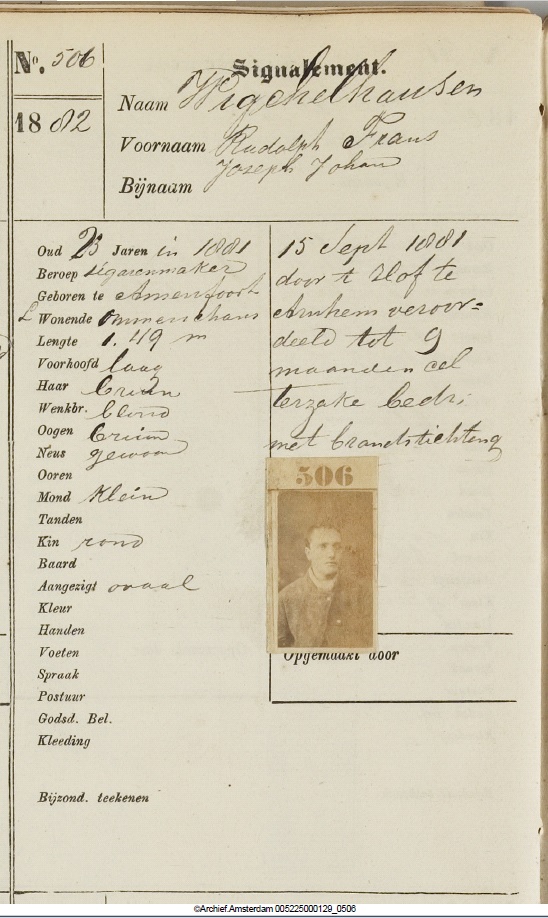 No. 506
Signalement.
1882
Naam Wigchelhausen
Voornaam Rudolph Frans
Joseph Johan
Bijnaam
Oud 23 Jaren in 1881
Beroep sigarenmaker
Geboren te Amersfoort
Wonende Ommerschans
Lengte 1.49 m
Voorhoofd laag
Haar bruin
Wenkbr. blond
Oogen bruin
Neus gewoon
Ooren
Mond Klein
Tanden
Kin rond
Baard
Aangezigt ovaal
Kleur
Handen
Voeten
Spraak
Postuur
Godsd. Bel.
Kleeding
Bijzond. teekenen
15 Sept 1881
door t Hof te
Arnhem veroor=
deeld tot 9
maanden cel
terzake bedr:
met brandstichting
506
Opgemaakt door
©Archief.Amsterdam 005225000129_0506